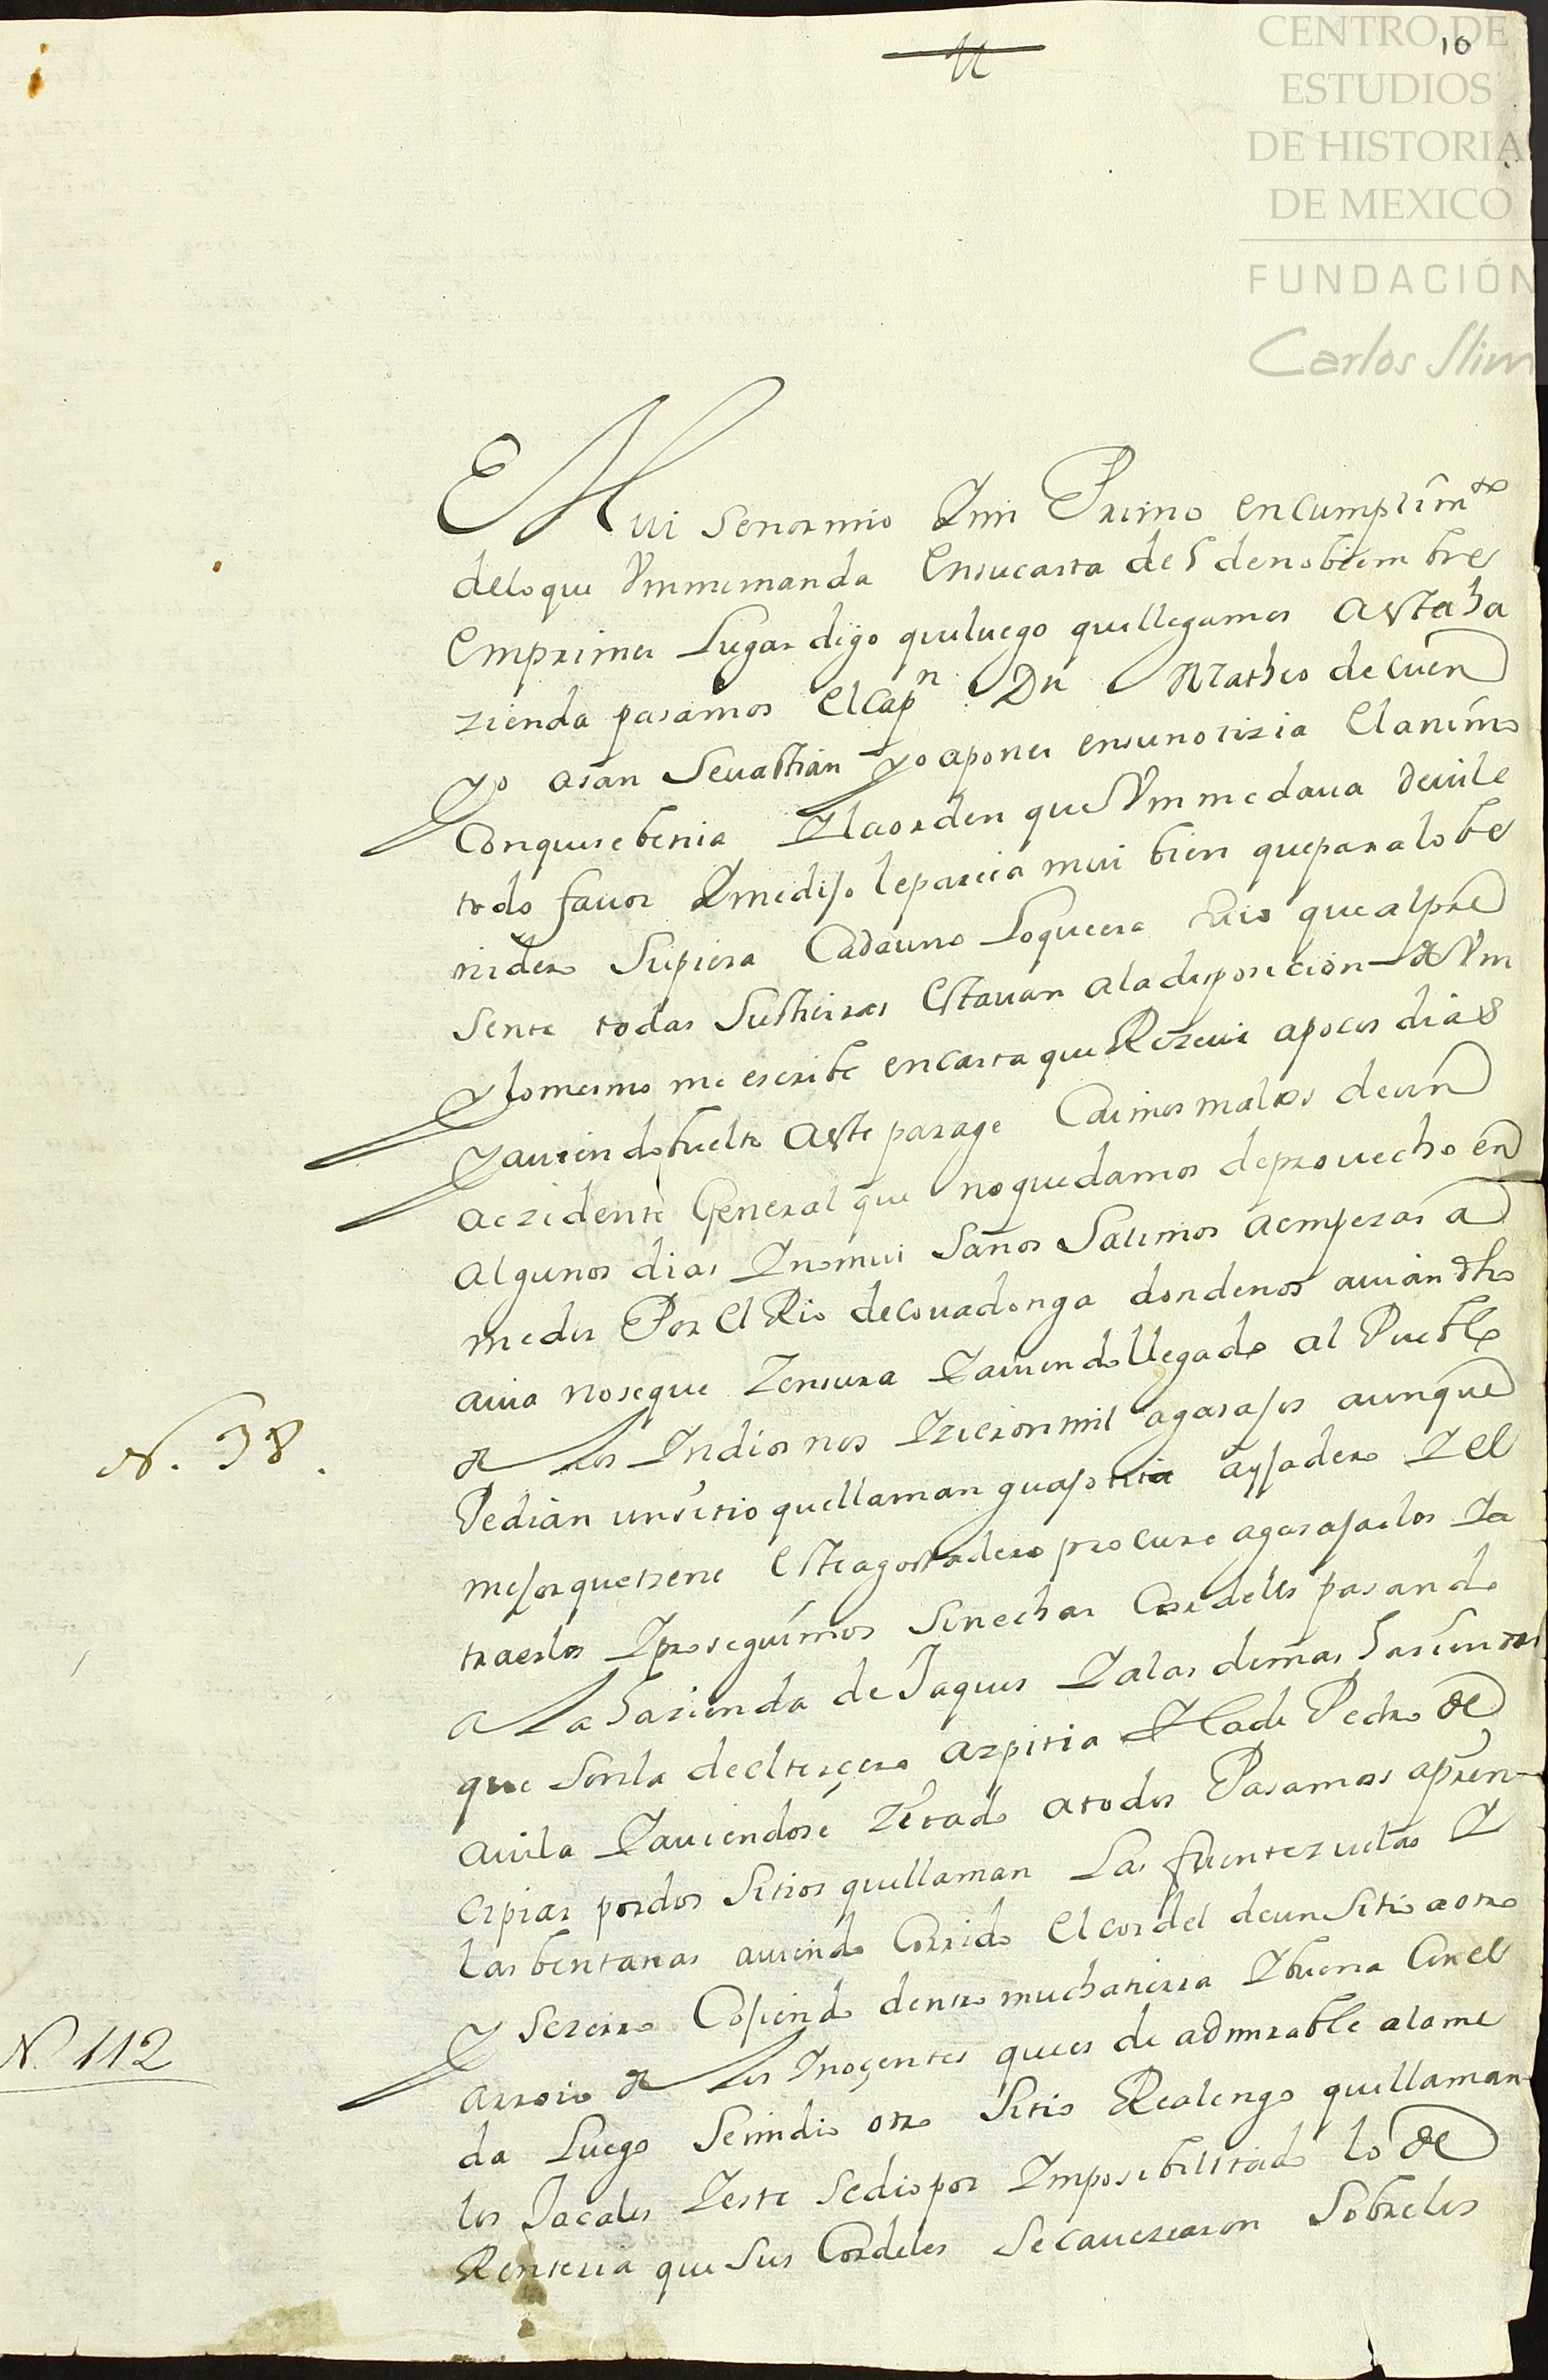 11
10
CENTRO DE
ESTUDIOS
DE HISTORIA
DE MEXICO
FUNDACIÓN
Carlos Slim
Mui senor mio Y mi Primo en cumplimto
de lo que Vm me manda en su carta de 5 de nobiembre
en primer Lugar digo que luego que llegamos a esta ha
zienda pasamos el Capn Dn Matheo de cuen
Yo a san Sevastian Yo a poner en su notizia el animo
con que se benia Y la orden que Vm me dava de
todo favor Y me dijo le parecia mui bien que para lo be
nidero Supiera Cada uno Lo que era Suio que al pre
sente todas Sus tierras estavan a la disposicion de Vm
Y lo mesmo me escribe en carta que Rezevi a pocos dias
Y aviendo buelto a este parage Caimos malos de un
aczidente General que no quedamos de provecho en
algunos dias Y no mui Sanos Salimos a empezar a
medir Por el Rio de covadonga donde nos avian dho
avia no se que Zensura Y aviendo llegado al Pueblo
de Los Yndios nos Yzieron mil agasajos aunque
Pedian un sitio que llaman aguadero Y el
mejor que tiene este agostadero procure agasajarlos Y a
traerlos Y proseguimos Sin echar Cordeles pasando
a La hazienda de Jaques Y a las demas hasiendas
que Son la de el terçero azpitia Y la de Pedro de
avila Y aviendose Zitado a todos Pasamos a prin
cipiar por dos Sitios que llaman Las fuentezuelas Y
las bentanas aviendo Corrido el cordel de un Sitio a otro
Y se zerro Cojiendo dentro mucha tierra Y buena Con el
arroio de Los Ynoçentes que es de admirable alame
da Luego Se midio otro Sitio Realengo que llaman
los Jacales Y este se dio por Ymposibilitado lo de
Renteria que Sus Cordeles Se cavezearon Sobre los
N. 38.
N. 112